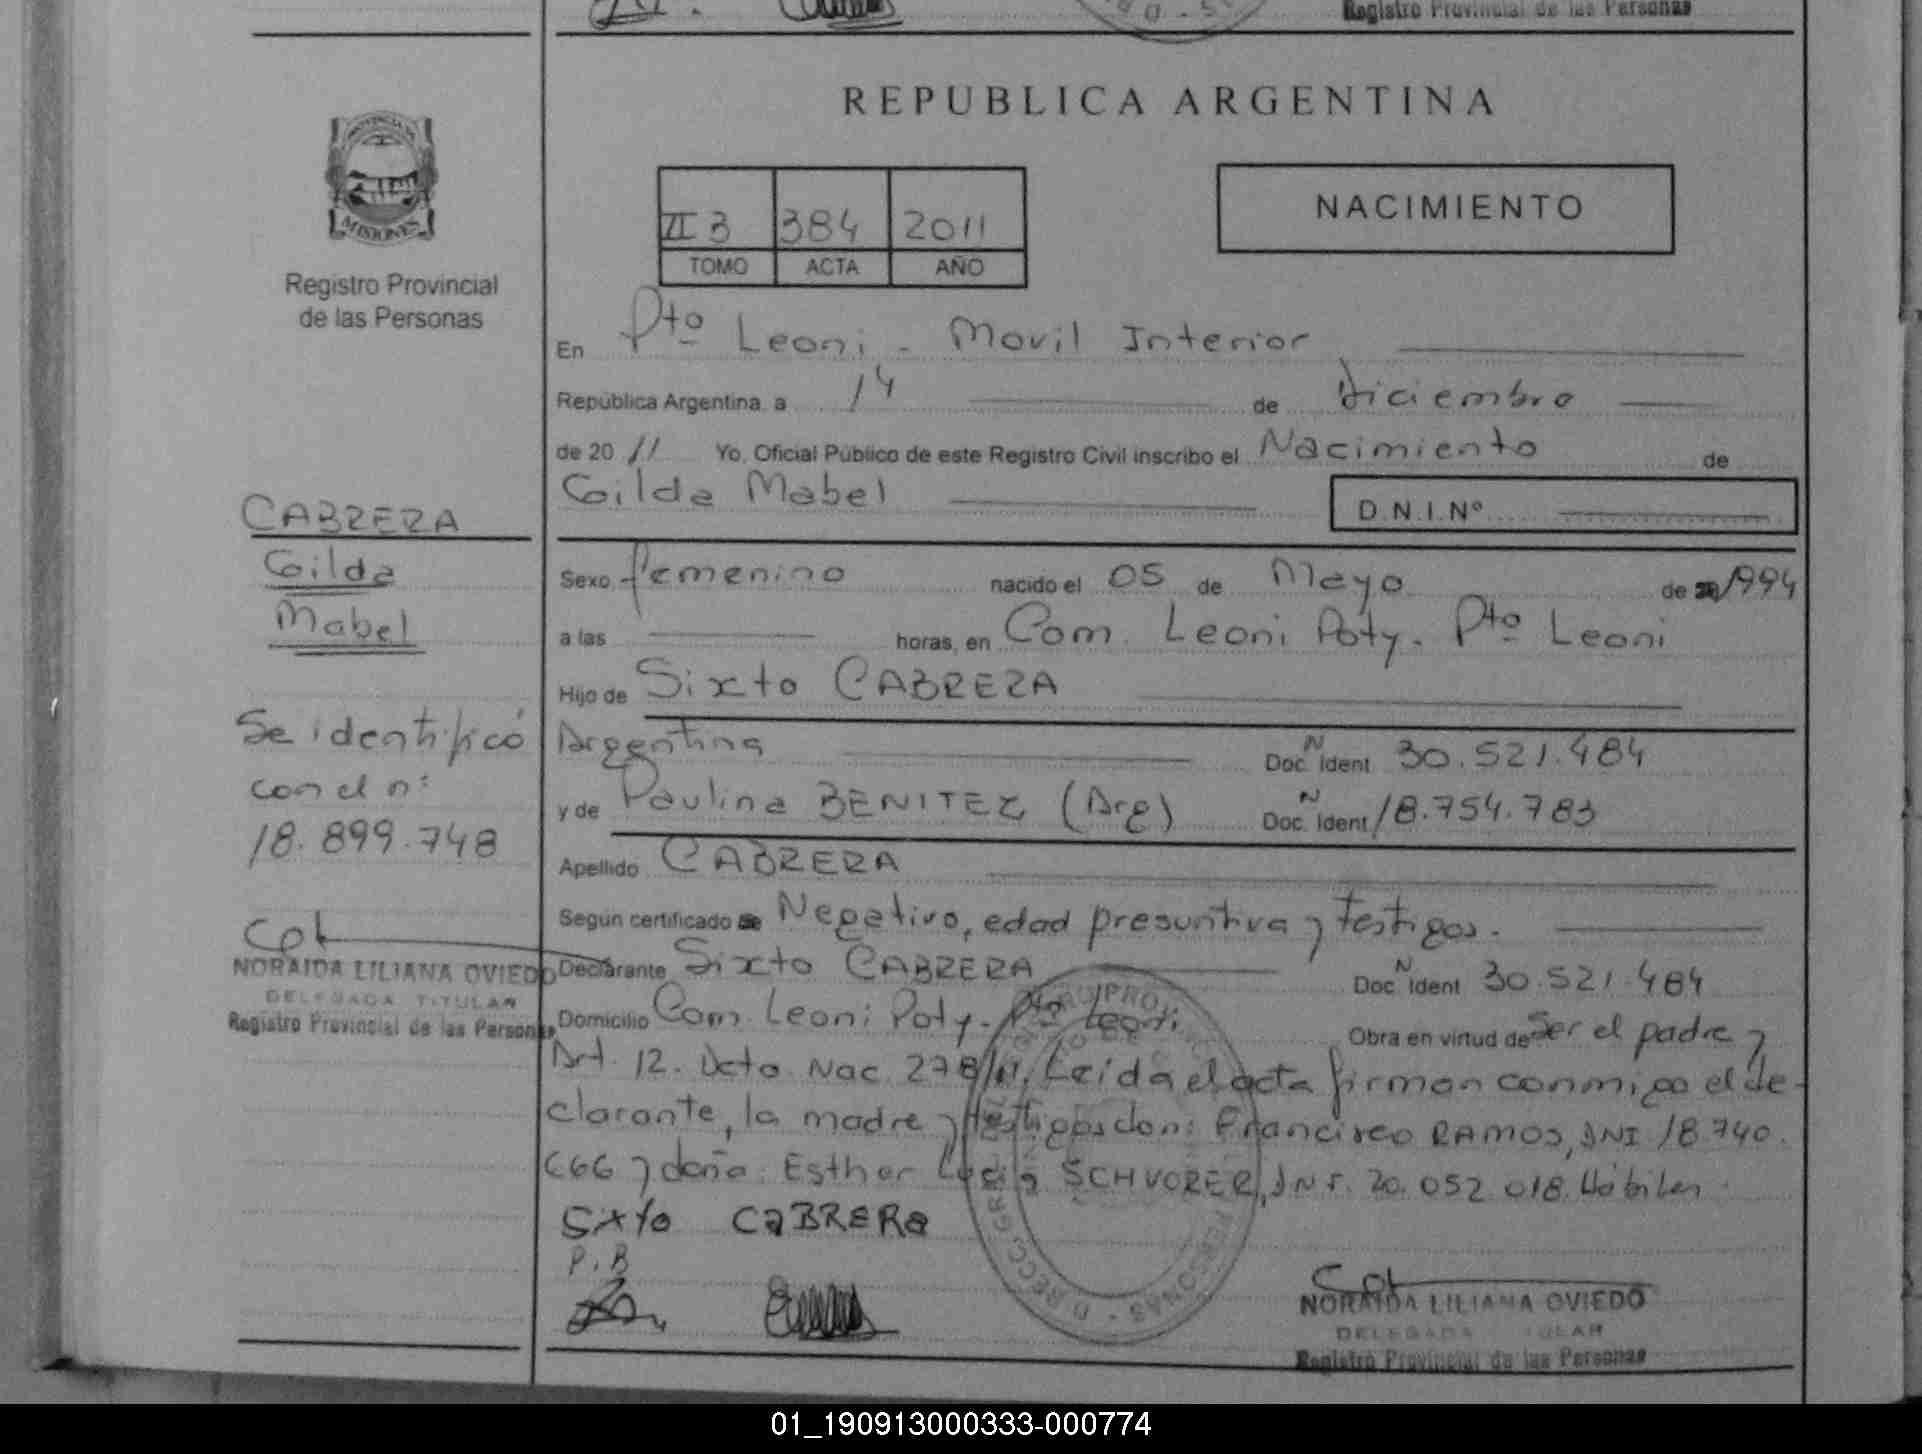 Registro Provincial de las Personas
REPUBLICA ARGENTINA
PROVINCIA DE
MISIONES
Registro Provincial
de las Personas
II 3 384 2011
TOMO ACTA AÑO
NACIMIENTO
En Pto Leoni - Movil Interior
República Argentina, a 14 de Diciembre
de 20 11 Yo, Oficial Público de este Registro Civil inscribo el Nacimiento de
Gilda Mabel D.N.I.Nº
CABRERA
Gilda
Mabel
Sexo femenino nacido el 05 de Mayo de 1994
a las horas, en Com. Leoni Poty - Pto Leoni
Hijo de Sixto CABRERA
Argentina Doc. N Ident 30.521.484
y de Paulina BENITEZ (Arg) Doc. N Ident 18.754.783
Apellido CABRERA
Según certificado de Negativo, edad presuntiva y testigos.
Declarante Sixto CABRERA Doc. N Ident 30.521.484
Domicilio Com. Leoni Poty - Pto Leoni Obra en virtud de Ser el padre y
Art. 12. Dcto Nac. 278/11, Leída el acta firman conmigo el de-
clarante, la madre y testigos don: Francisco RAMOS, DNI 18.740.
666 y doña: Esther Lucia SCHVORER, DNI. 20.052.018. Hábiles
Sixto CABRERA
P.B
Se identificó
con el nº
18.899.748
NORAIDA LILIANA OVIEDO
DELEGADA TITULAR
Registro Provincial de las Personas
NORAIDA LILIANA OVIEDO
DELEGADA TITULAR
Registro Provincial de las Personas
01_190913000333-000774